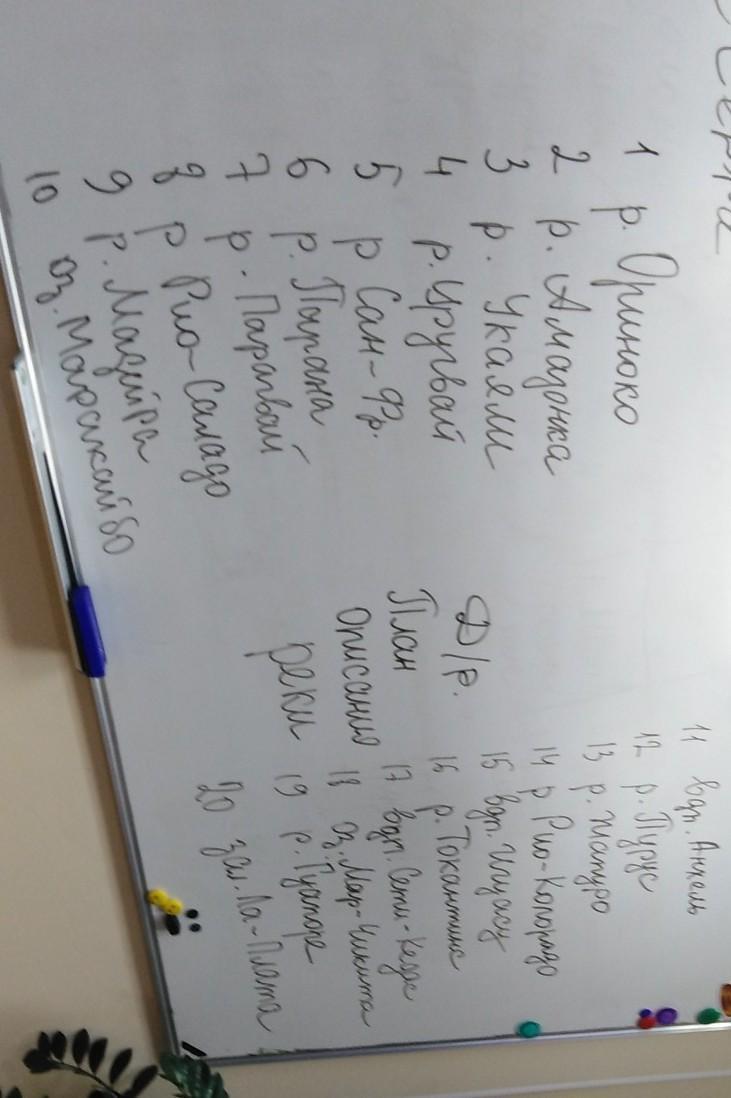 1 р. Ориноко
2 р. Амазонка
3 р. Укаяли
4 р. Уругвай
5 р Сан-Фр.
6 р. Парана
7 р. Парагвай
8 р Рио-Саладо
9 р. Мадейра
10 оз. Маракайбо
Д/р.
План
описания
реки
11 вдп. Анхель
12 р. Пурус
13 р. Жапуро
14 р Рио-Колорадо
15 вдп. Игуасу
16 р. Токантинс
17 вдп. Сети-Кедас
18 оз. Мар-Чикита
19 р. Гуапоре
20 зал. Ла-Плата